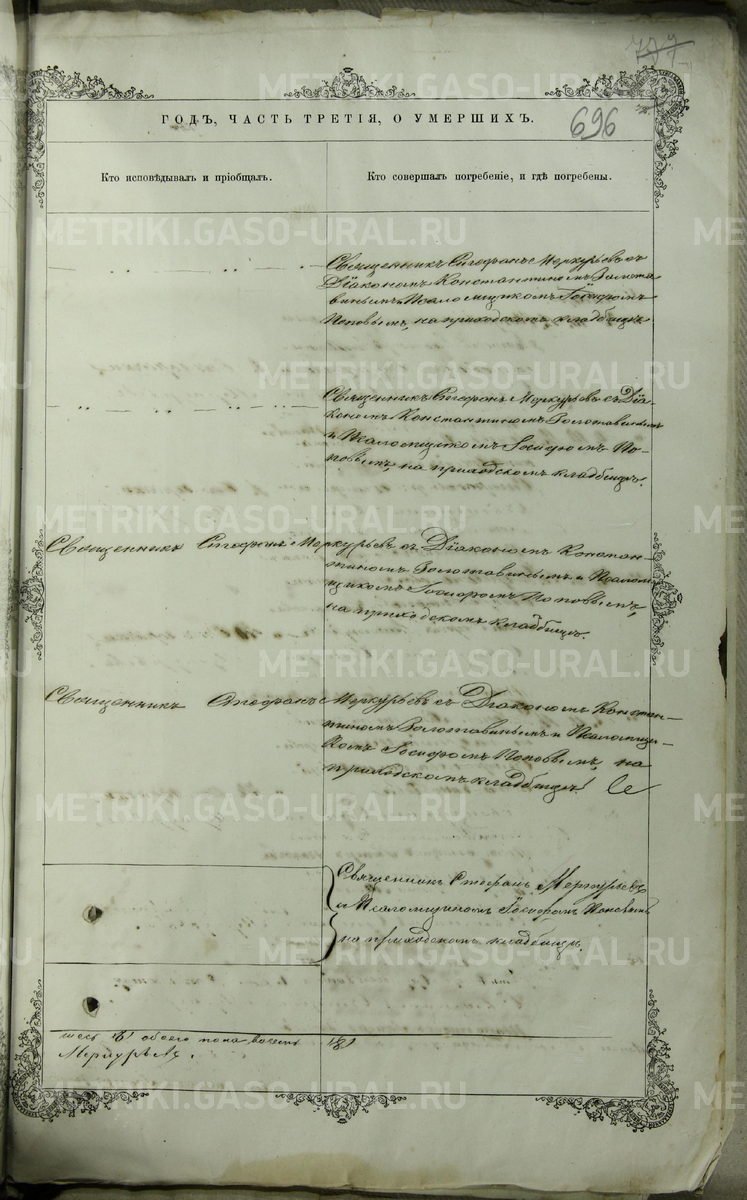 777
696
ГОДЪ, ЧАСТЬ ТРЕТІЯ, О УМЕРШИХЪ.
Кто исповѣдывалъ и пріобщалъ.
Кто совершалъ погребеніе, и гдѣ погребены.
Священникъ Стефанъ Меркурьевъ съ
Діакономъ Константиномъ Золота
винымъ и Псаломщикомъ Іосифомъ
Поповымъ, на приходскомъ кладбищѣ.
Священникъ Стефанъ Меркурьевъ съ Діа-
кономъ Константиномъ Золотавинымъ
и Псаломщикомъ Іосифомъ По-
повымъ, на приходскомъ кладбищѣ.
Священникъ Стефанъ Меркурьевъ съ Діакономъ Констан-
тиномъ Золотавинымъ и Псалом-
щикомъ Іосифомъ Поповымъ,
на приходскомъ кладбищѣ.
Священникъ Стефанъ Меркурьевъ съ Діакономъ Констан-
тиномъ Золотавинымъ и Псаломщи-
комъ Іосифомъ Поповымъ, на
приходскомъ кладбищѣ.
Священникъ Стефанъ Меркурьевъ
и Псаломщикомъ Іосифомъ Поповымъ
на приходскомъ кладбищѣ.
обоего пола восемь
Меркурьевъ.
METRIKI.GASO-URAL.RU